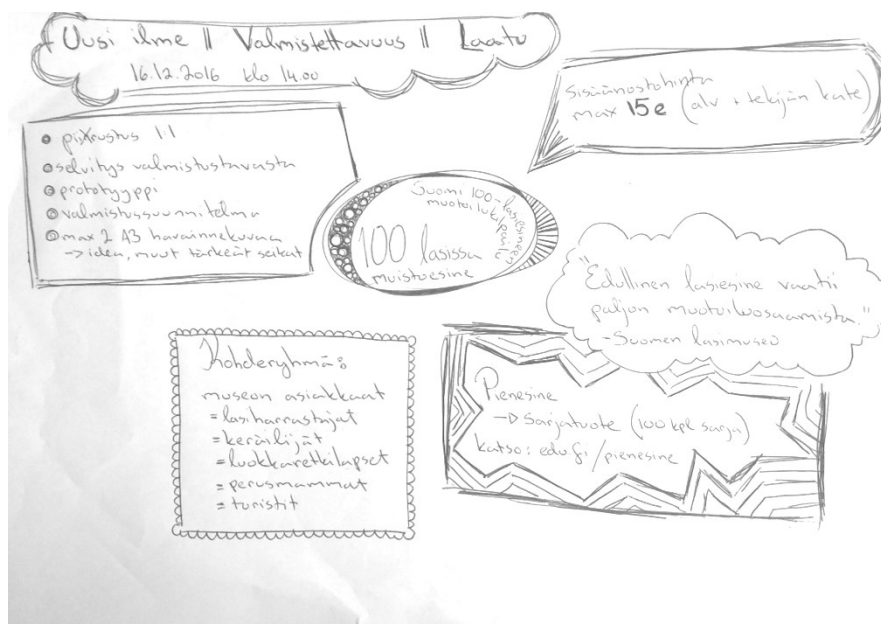 + Uusi ilme || Valmistettavuus || Laatu
16.12.2016 klo 14.00
Sisäänostohinta
max 15e (alv + tekijän kate)
piirustus 1:1
selvitys valmistustavasta
prototyyppi
valmistussuunnitelma
max 2 A3 havainnekuvaa
-> idea, muut tärkeät seikat
Suomi 100-lasiesineen
muotoilukilpailu
100 lasissa
muistoesine
"Edullinen lasiesine vaatii
paljon muotoiluosaamista."
-Suomen lasimuseo
Kohderyhmä:
museon asiakkaat
= lasiharrastajat
= keräilijät
= luokkaretkilapset
= perusmammat
= turistit
Pienesine
-> Sarjatuote (100 kpl sarja)
katso: edu.fi/pienesine